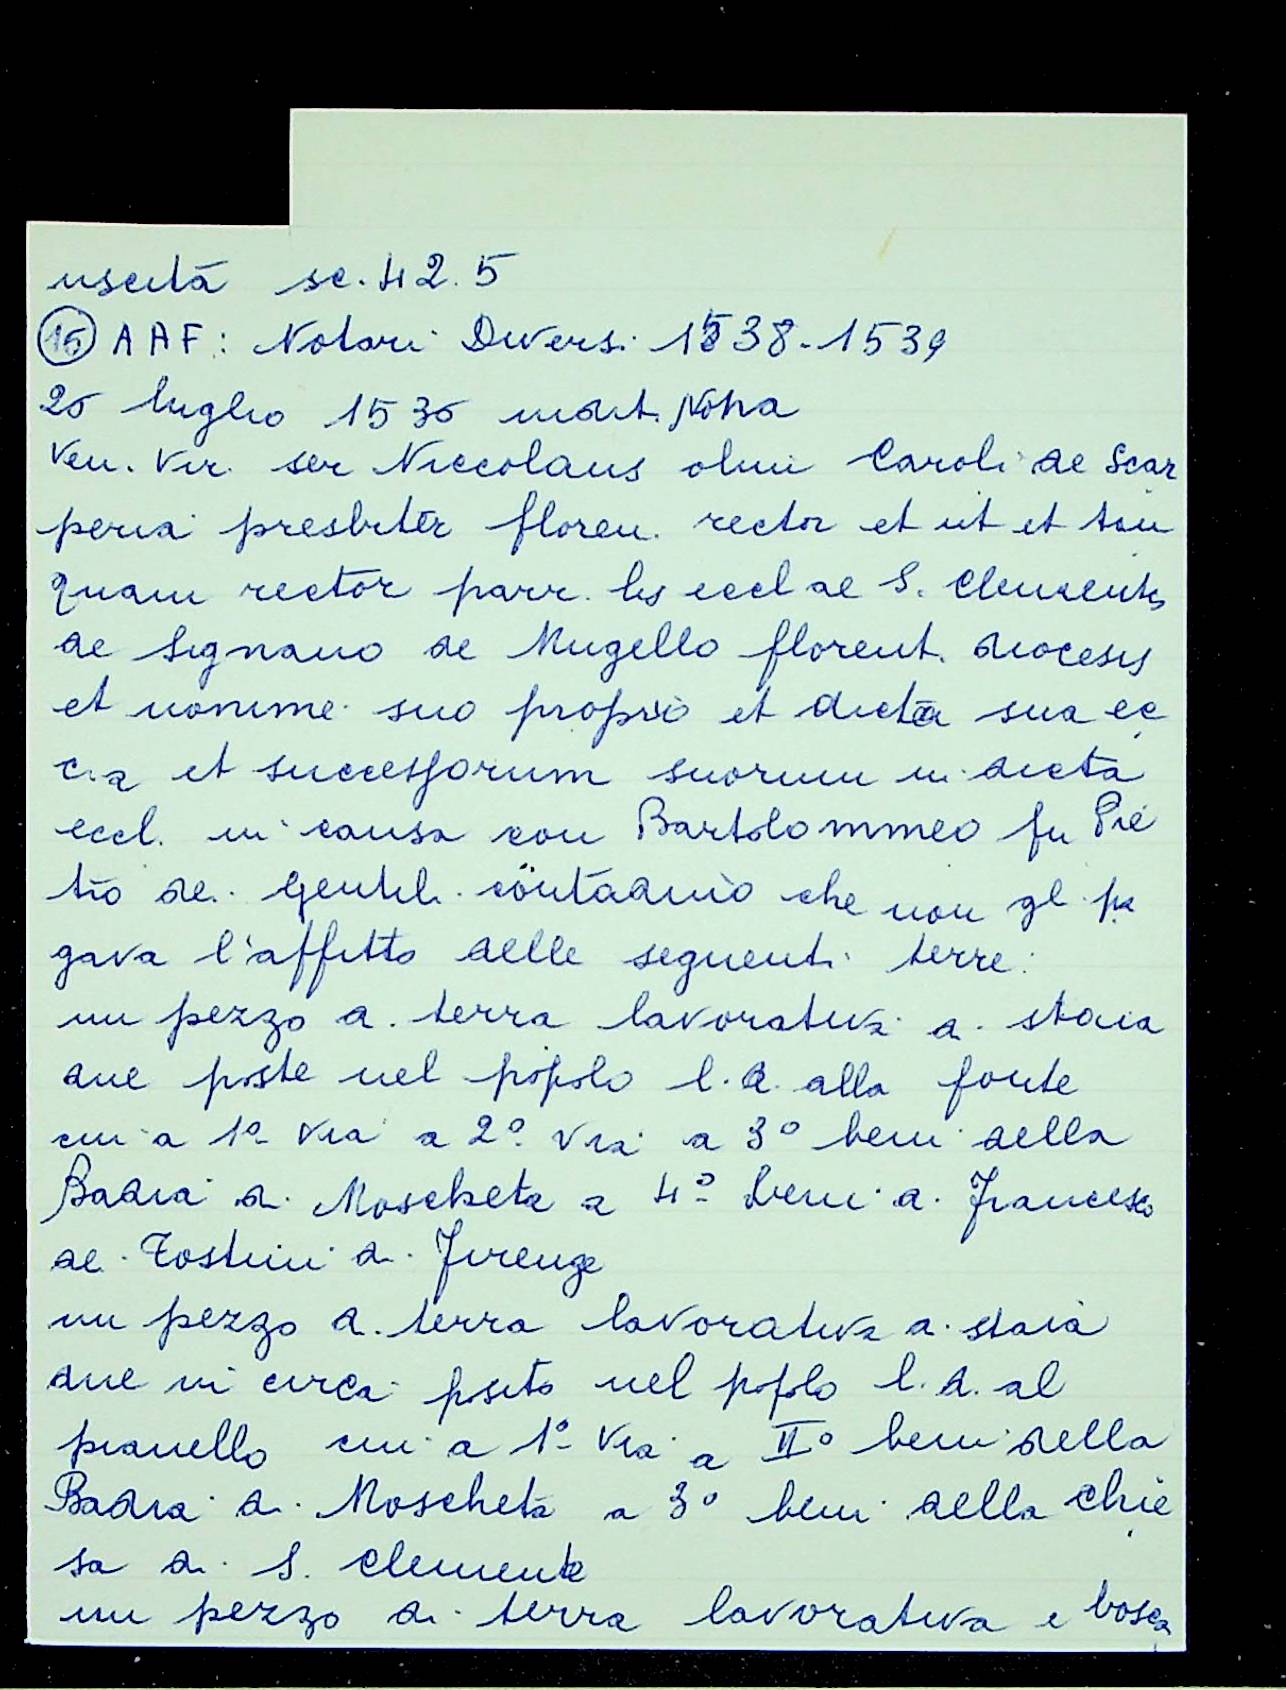 uscita sc. 42.5
(15) AAF: Notari Diversi 1538-1539
26 luglio 1536 indit. Nona
Ven. Vir. ser Niccolaus olim Caroli de Scar
peria presbiter floren. rector et uti et tan
quam rector parr. lis eccl ae S. Clementis
de Signano de Mugello florent. diocesis
et nomine suo proprio et dicta sua ec
c.a et successorum suorum in dicta
eccl. in causa con Bartolommeo fu Pie
tro de Gentili contadino che non gl pa
gava l'affitto delle seguenti terre:
un pezzo di terra lavorativa di staia
due poste nel popolo l.d. alla fonte
cui a 1º via a 2º via a 3º beni della
Badia di Moscheta a 4º beni di Francesco
de Tosini di Firenze
un pezzo di terra lavorativa di staia
due in circa posto nel popolo l.d. al
pianello cui a 1º via a IIº beni della
Badia di Moscheta a 3º beni della chie
sa di S. Clemente
un pezzo di terra lavorativa e bosca